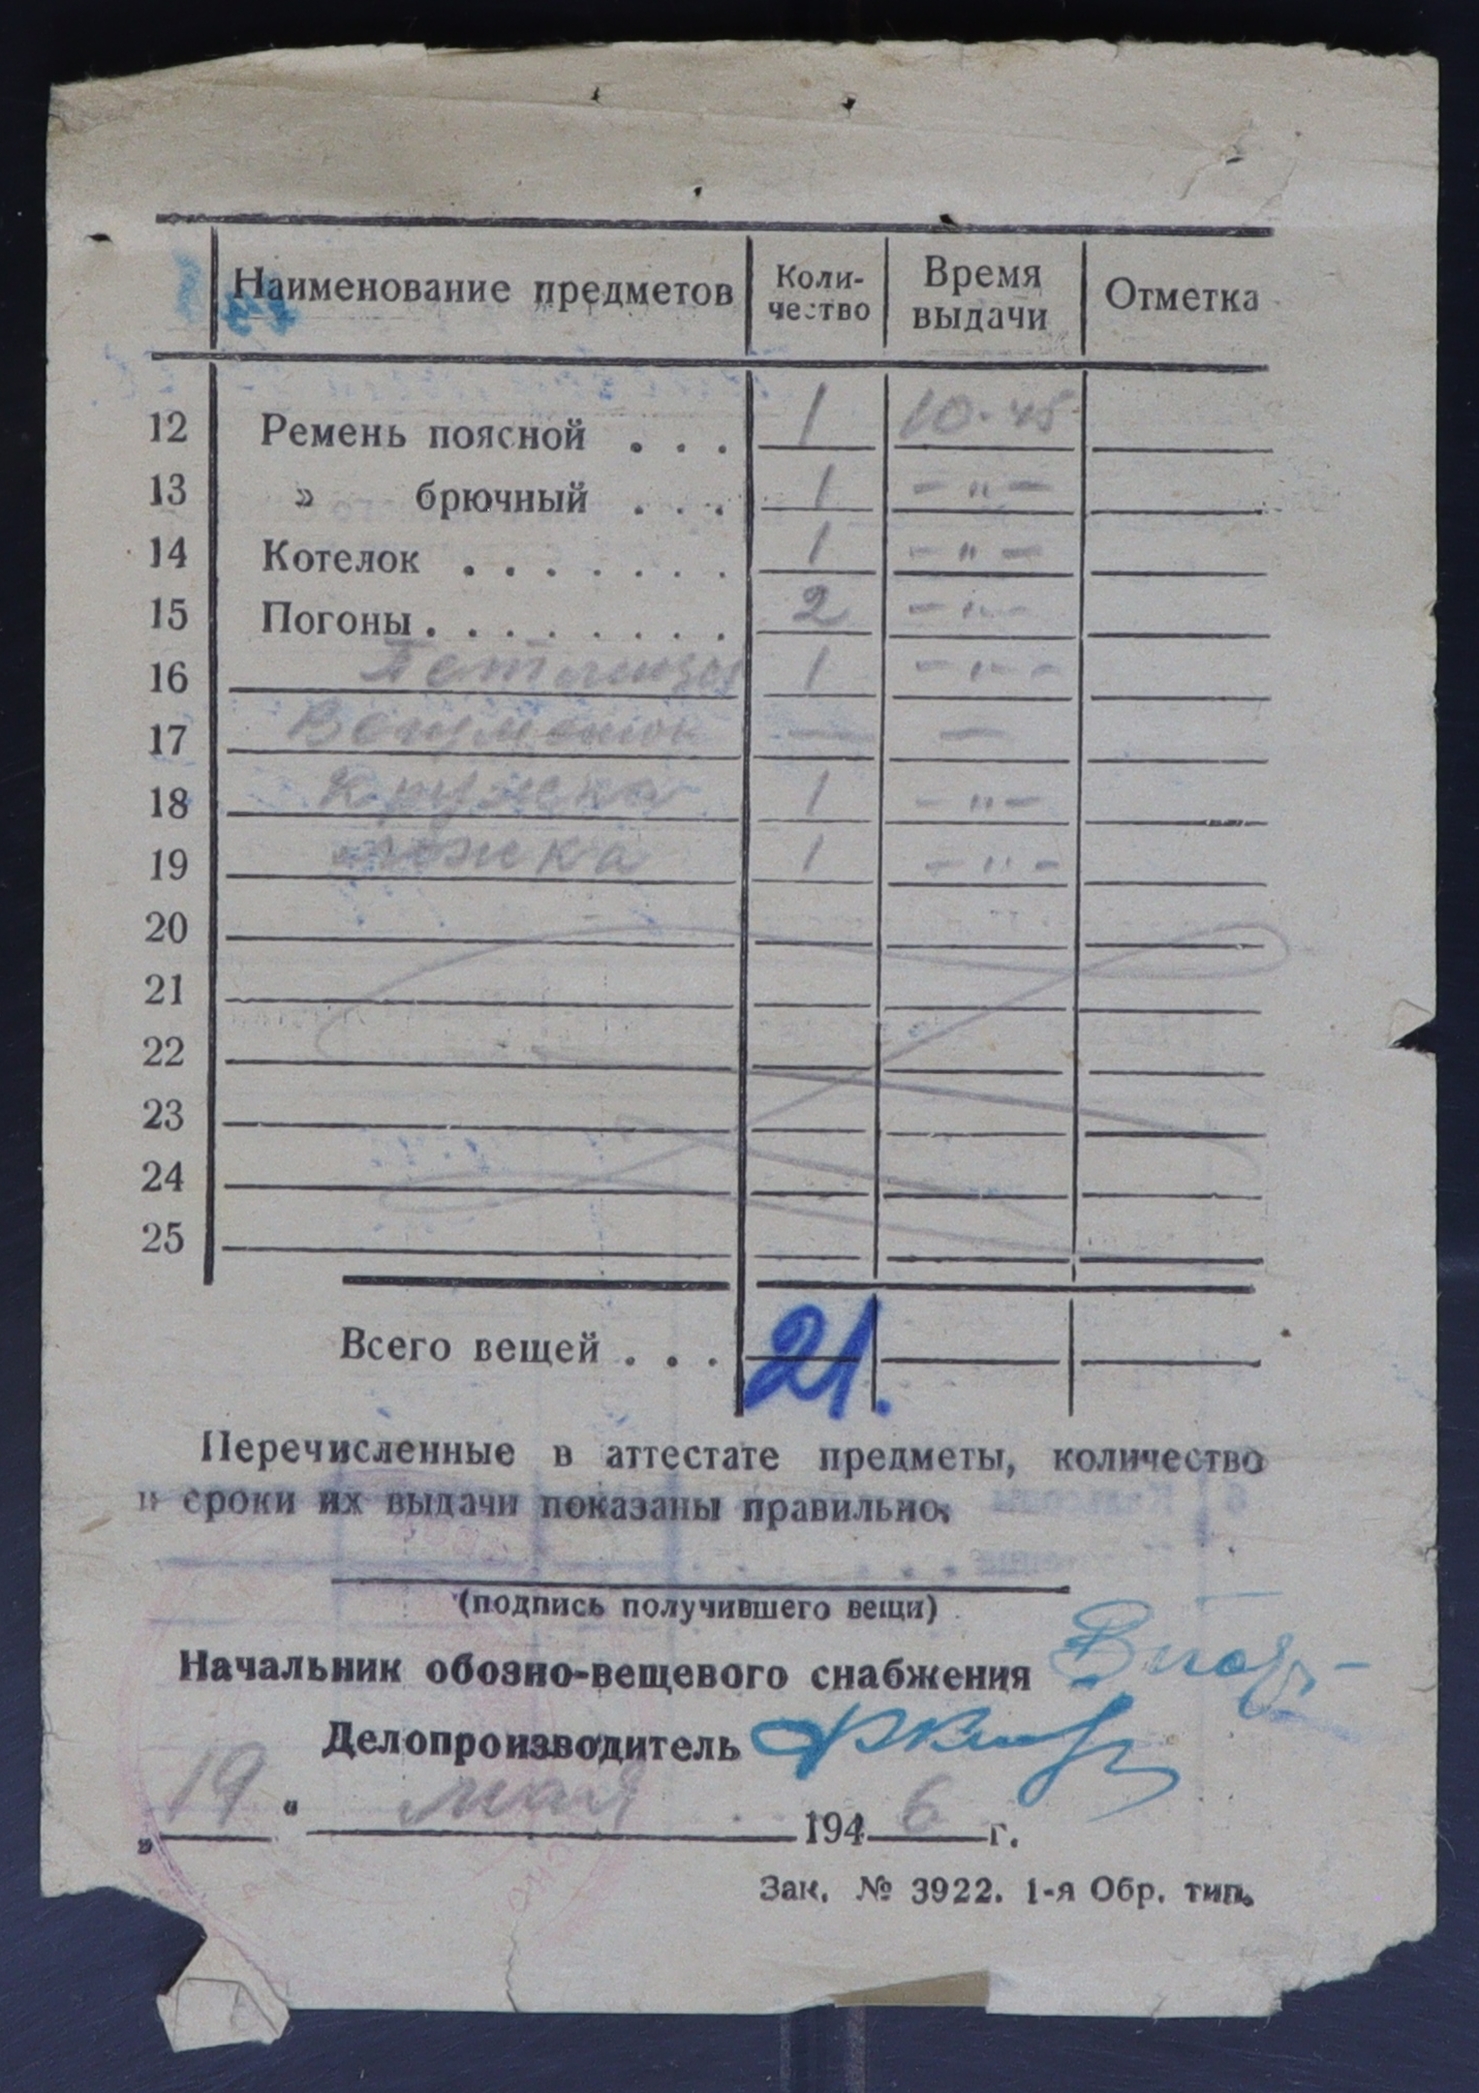 Наименование предметов Коли-чество Время выдачи Отметка
12 Ремень поясной . . . 1 10-45
13 » брючный . . . 1 – " –
14 Котелок . . . . . . . 1 – " –
15 Погоны . . . . . . . . 2 – " –
16 1 – " –
17 — —
18 Кружка 1 – " –
19 Ложка 1 – " –
20
21
22
23
24
25
Всего вещей . . . 21.
Перечисленные в аттестате предметы, количество
и сроки их выдачи показаны правильно.
(подпись получившего вещи)
Начальник обозно-вещевого снабжения
Делопроизводитель
„ 19 “ мая 1946 г.
Зак. № 3922. 1-я Обр. тип.